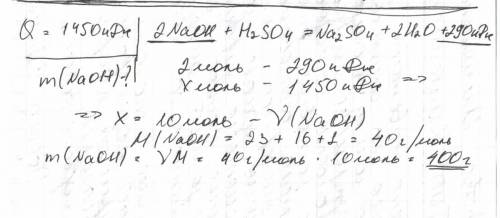 Q = 1450кДж
2NaOH + H2SO4 = Na2SO4 + 2H2O + 290кДж
m(NaOH)-?
2моль - 290кДж
xмоль - 1450кДж =>
=> X = 10моль - ν(NaOH)
M(NaOH) = 23 + 16 + 1 = 40г/моль
m(NaOH) = νM = 40г/моль · 10моль = 400г